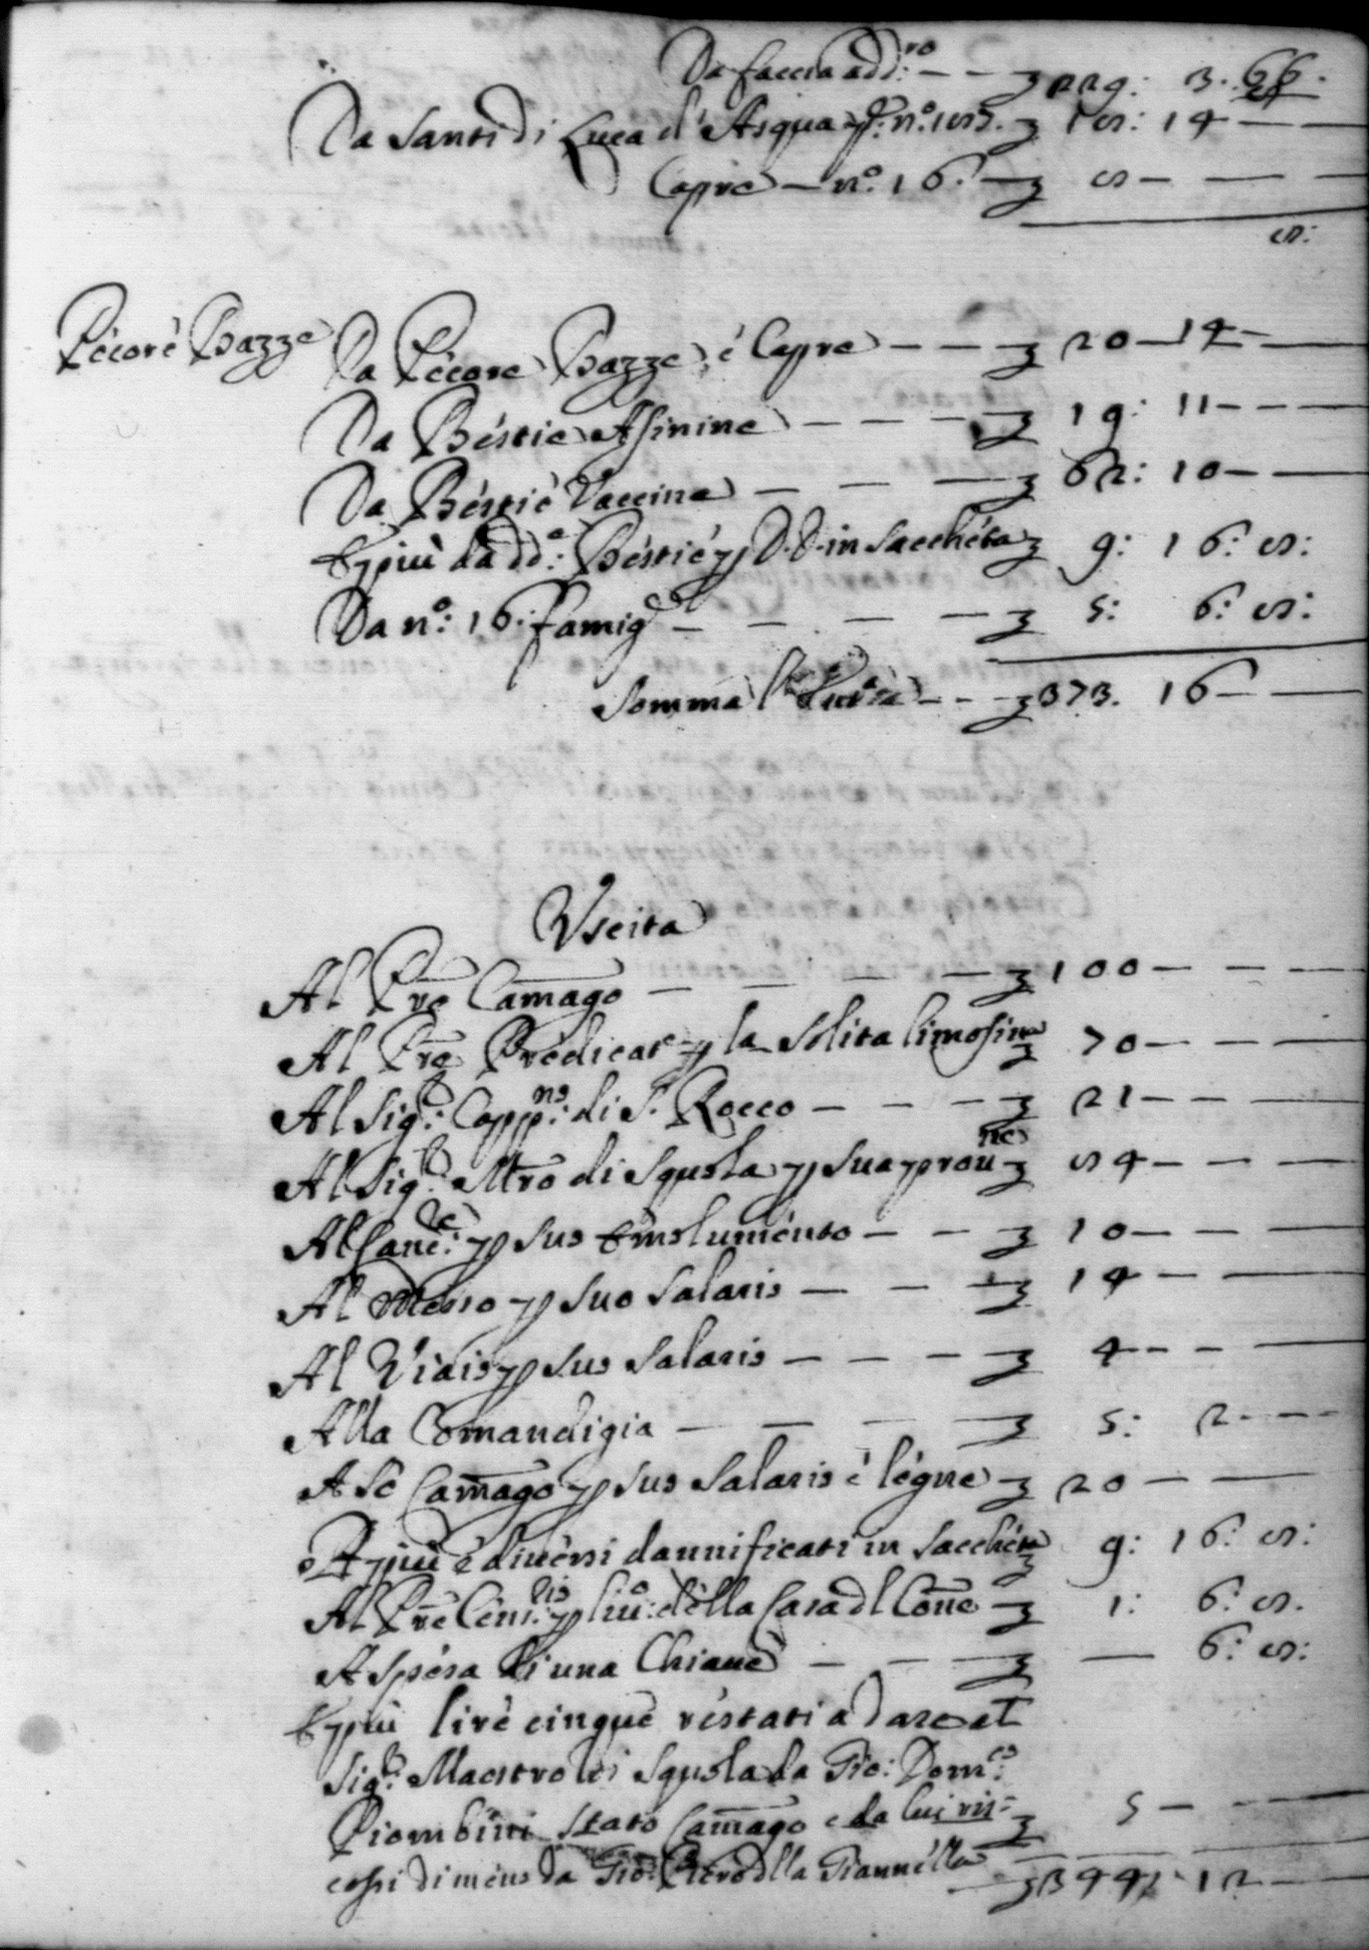 Da faccia add:ro - - - £ 229: 3. 66.
Da Santi di Luca d'Asqua p: n.o 155. £ 15: 14 -
Capre - n.o 16. - £ 5 - - -
5:
Pecore Bazze Da Pecore Bazze, e Capre - - - £ 20 - 14 -
Da Bestie Asinine - - - £ 19: 11 - - -
Da Bestie Vaccine - - - £ 62: 10 -
E più da dd.e Bestie p D. D. in Saccheta £ 9: 16: 5:
Da n.o: 16. Famig - - - - £ 5: 6: 5:
Somma l' - - - £ 373. 16 -
Uscita
Al Pre Camago - - - - £ 100 - - -
Al Pre Predicat.e p la Solita limosina £ 70 - - -
Al Sig.r Capp.no: di S. Rocco - - - £ 21 - - -
Al Sig.r Mtro di Squola p sua proune £ 54 - - -
Al Canc.re: p suo Emolumento - - £ 10 - - -
Al Messo p suo Salario - - - £ 14 - -
Al Viaio p suo Salario - - - - £ 4 - - -
Alla Comandigia - - - £ 5: 2 - - -
A Se Camago p suo Salario è legne - £ 20 - -
E più è diuersi dannificati in Saccheta £ 9: 16: 5:
Al Pre p liu: della Casa dl Cone - £ 1: 6: 5.
A Spesa di una Chiaue - - - £ - 6: 5:
E più lire cinque restati a Dare al
Sig.r Maestro di Squola da Gio: Dom.co
Piombini Stato Camago e da lui ris=
cossi di meno da Gio: Piero dlla Giannella £ 5 - - -
£ 344: 12 -